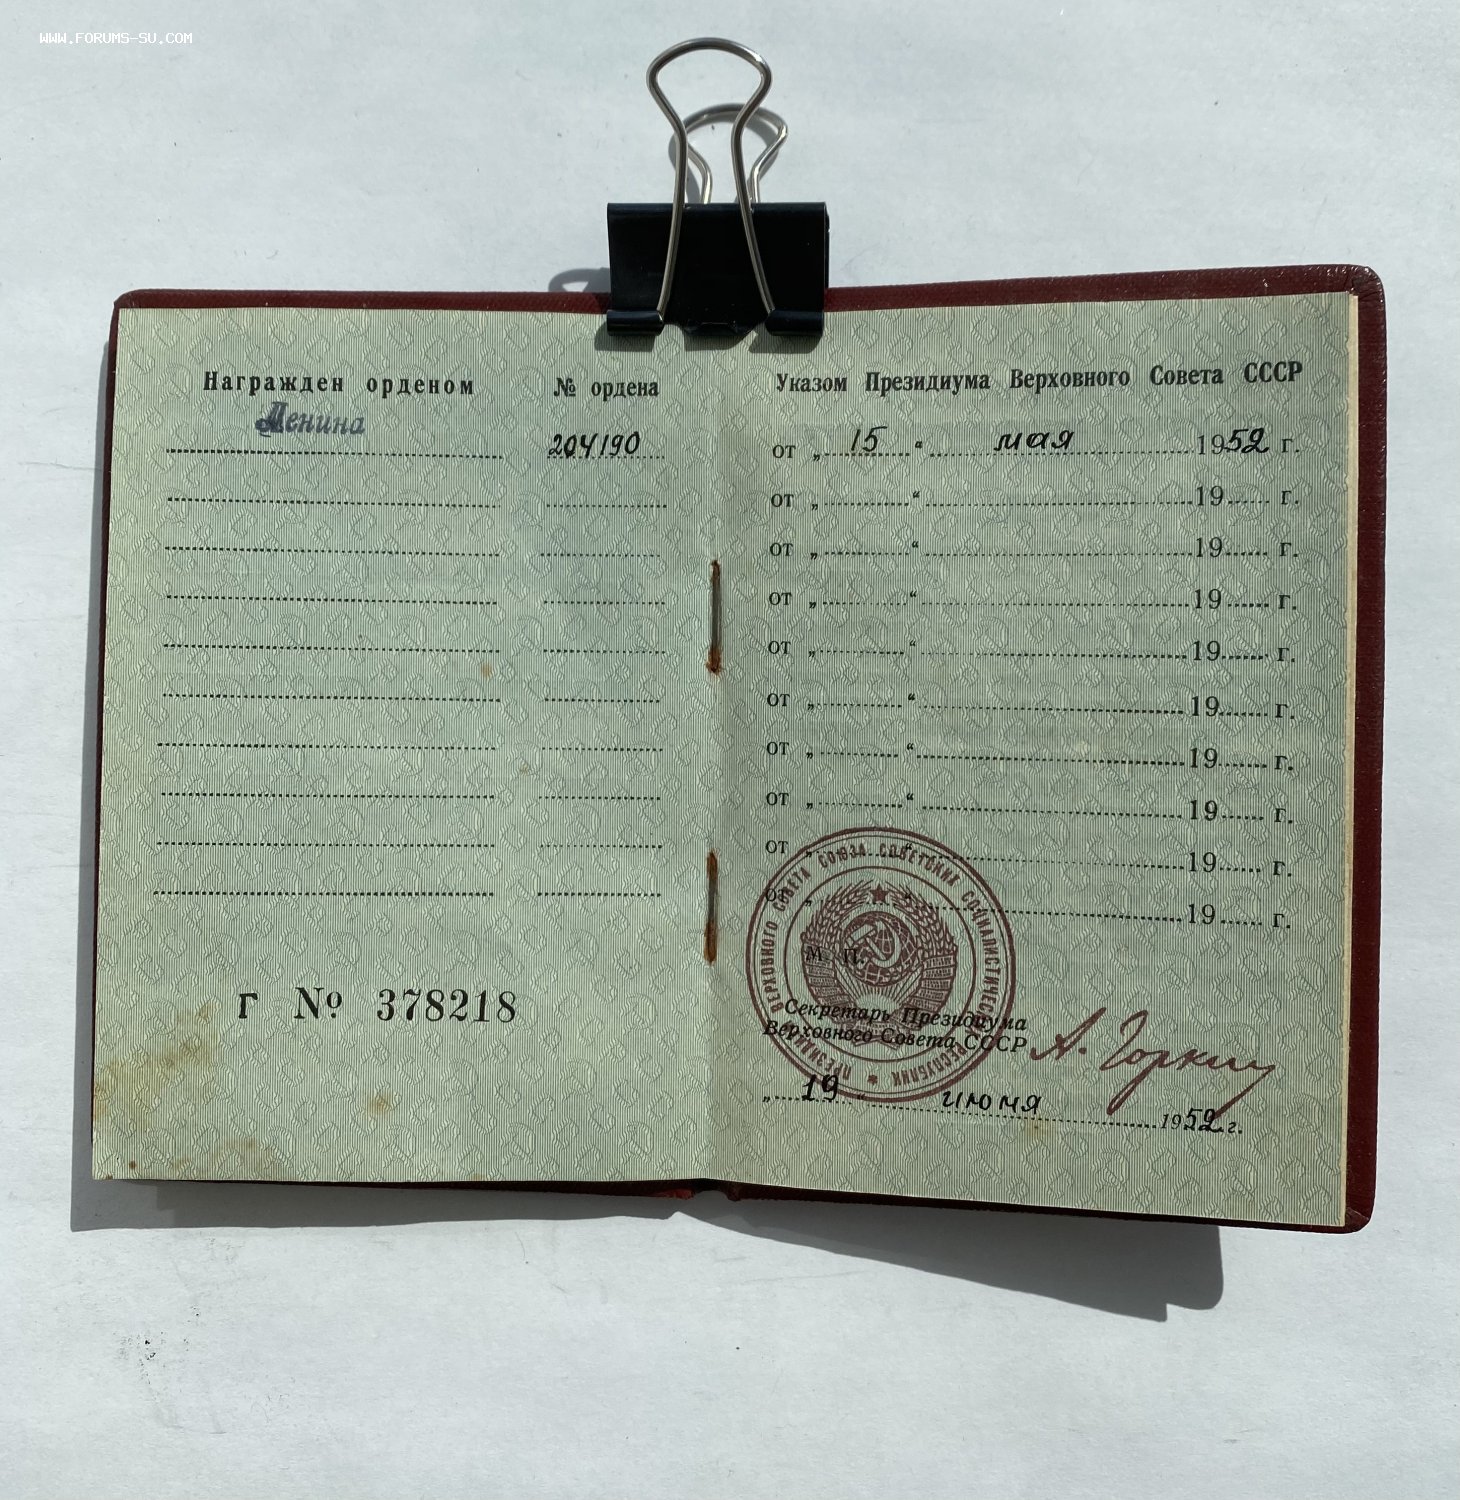 WWW.FORUMS-SU.COM
Награжден орденом № ордена
Ленина 204190
Г № 378218
Указом Президиума Верховного Совета СССР
от „ 15 “ мая 1952 г.
от „ “ 19 г.
от „ “ 19 г.
от „ “ 19 г.
от „ “ 19 г.
от „ “ 19 г.
от „ “ 19 г.
от „ “ 19 г.
от „ “ 19 г.
от „ “ 19 г.
М. П.
ПРЕЗИДИУМ ВЕРХОВНОГО СОВЕТА СОЮЗА СОВЕТСКИХ СОЦИАЛИСТИЧЕСКИХ РЕСПУБЛИК
Секретарь Президиума
Верховного Совета СССР А. Горкин
„ 19 “ июня 1952 г.